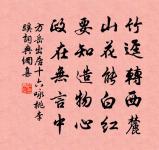 竹逕轉西麓
山花能白紅
要知造物心
政在無言中
方岳出居十六咏桃李
蹊詞典網書